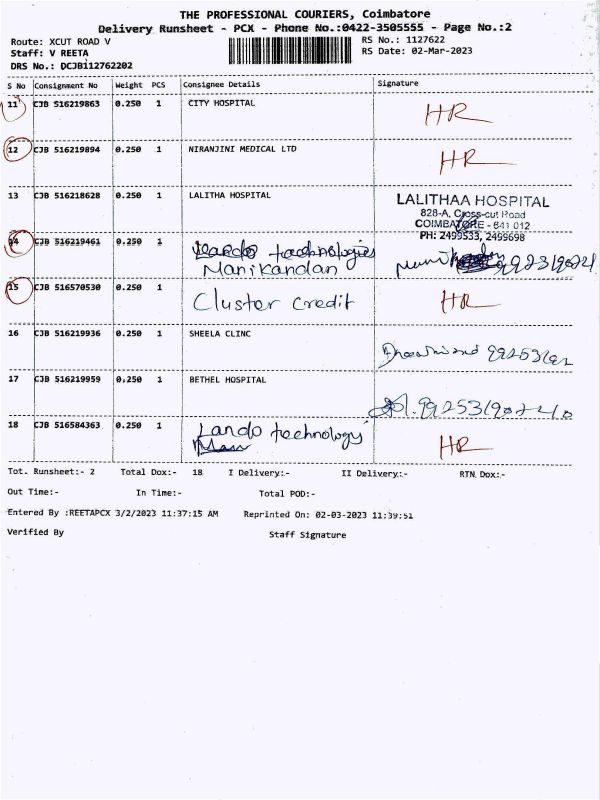 THE PROFESSIONAL COURIERS, Coimbatore
Delivery Runsheet - PCX - Phone No.:0422-3505555 - Page No.:2
Route: XCUT ROAD V RS No.: 1127622
Staff: V REETA RS Date: 02-Mar-2023
DRS No.: DCJB112762202
S No Consignment No Weight PCS Consignee Details Signature
11 CJB 516219863 0.250 1 CITY HOSPITAL HR
12 CJB 516219894 0.250 1 NIRANJINI MEDICAL LTD HR
13 CJB 516218628 0.250 1 LALITHA HOSPITAL LALITHAA HOSPITAL
828-A, Cross-cut Road
COIMBATORE - 641 012
PH: 2499533, 2499698
14 CJB 516219461 0.250 1 technologies
Manikandan
15 CJB 516570530 0.250 1 Cluster Credit HR
16 CJB 516219936 0.250 1 SHEELA CLINC
17 CJB 516219959 0.250 1 BETHEL HOSPITAL
18 CJB 516584363 0.250 1 Lando technology HR
Tot. Runsheet:- 2 Total Dox:- 18 I Delivery:- II Delivery:- RTN Dox:-
Out Time:- In Time:- Total POD:-
Entered By :REETAPCX 3/2/2023 11:37:15 AM Reprinted On: 02-03-2023 11:39:51
Verified By Staff Signature